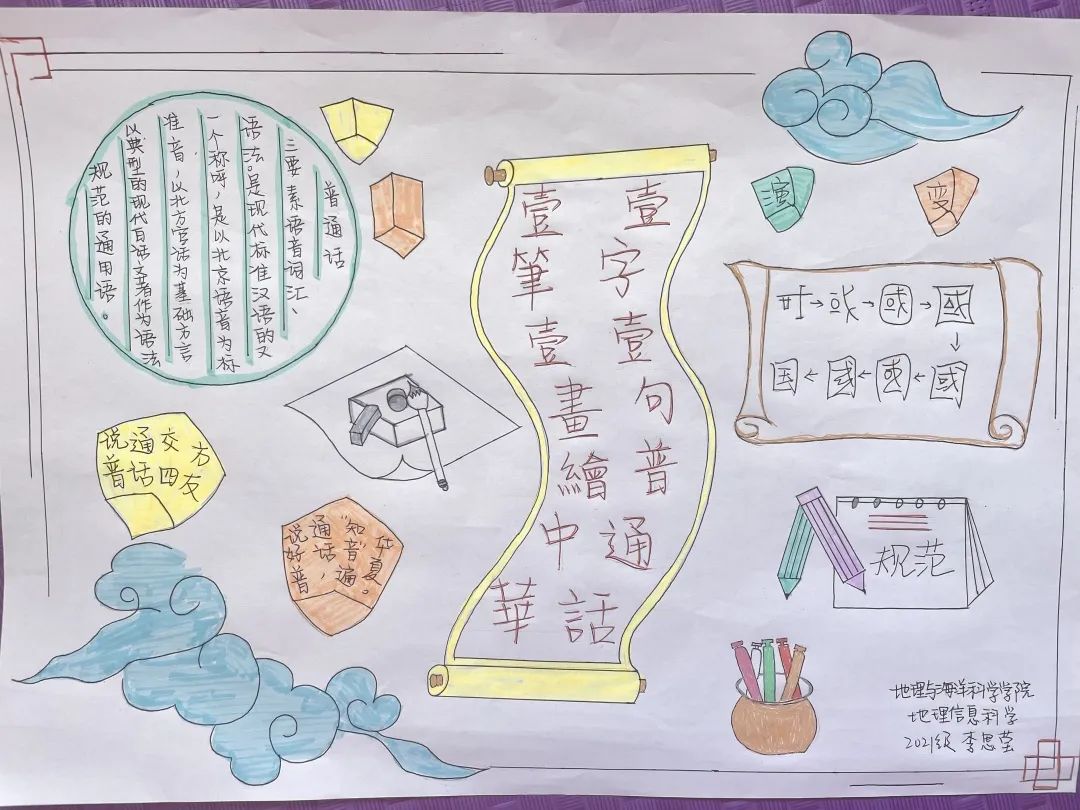 普通话
三要素语音词汇、
语法。是现代标准汉语的又
一个称呼，是以北京语音为标
准音，以北方官话为基础方言
以典型的现代白话文著作为语法
规范的通用语。
说普
通话
交四
方友
说好普
通话，
“知音”遍
华夏。
壹字壹句普通話
壹筆壹畫繪中華
演
变
國→國
国←國←國←國
规范
地理与海洋科学学院
地理信息科学
2021级 李思莹